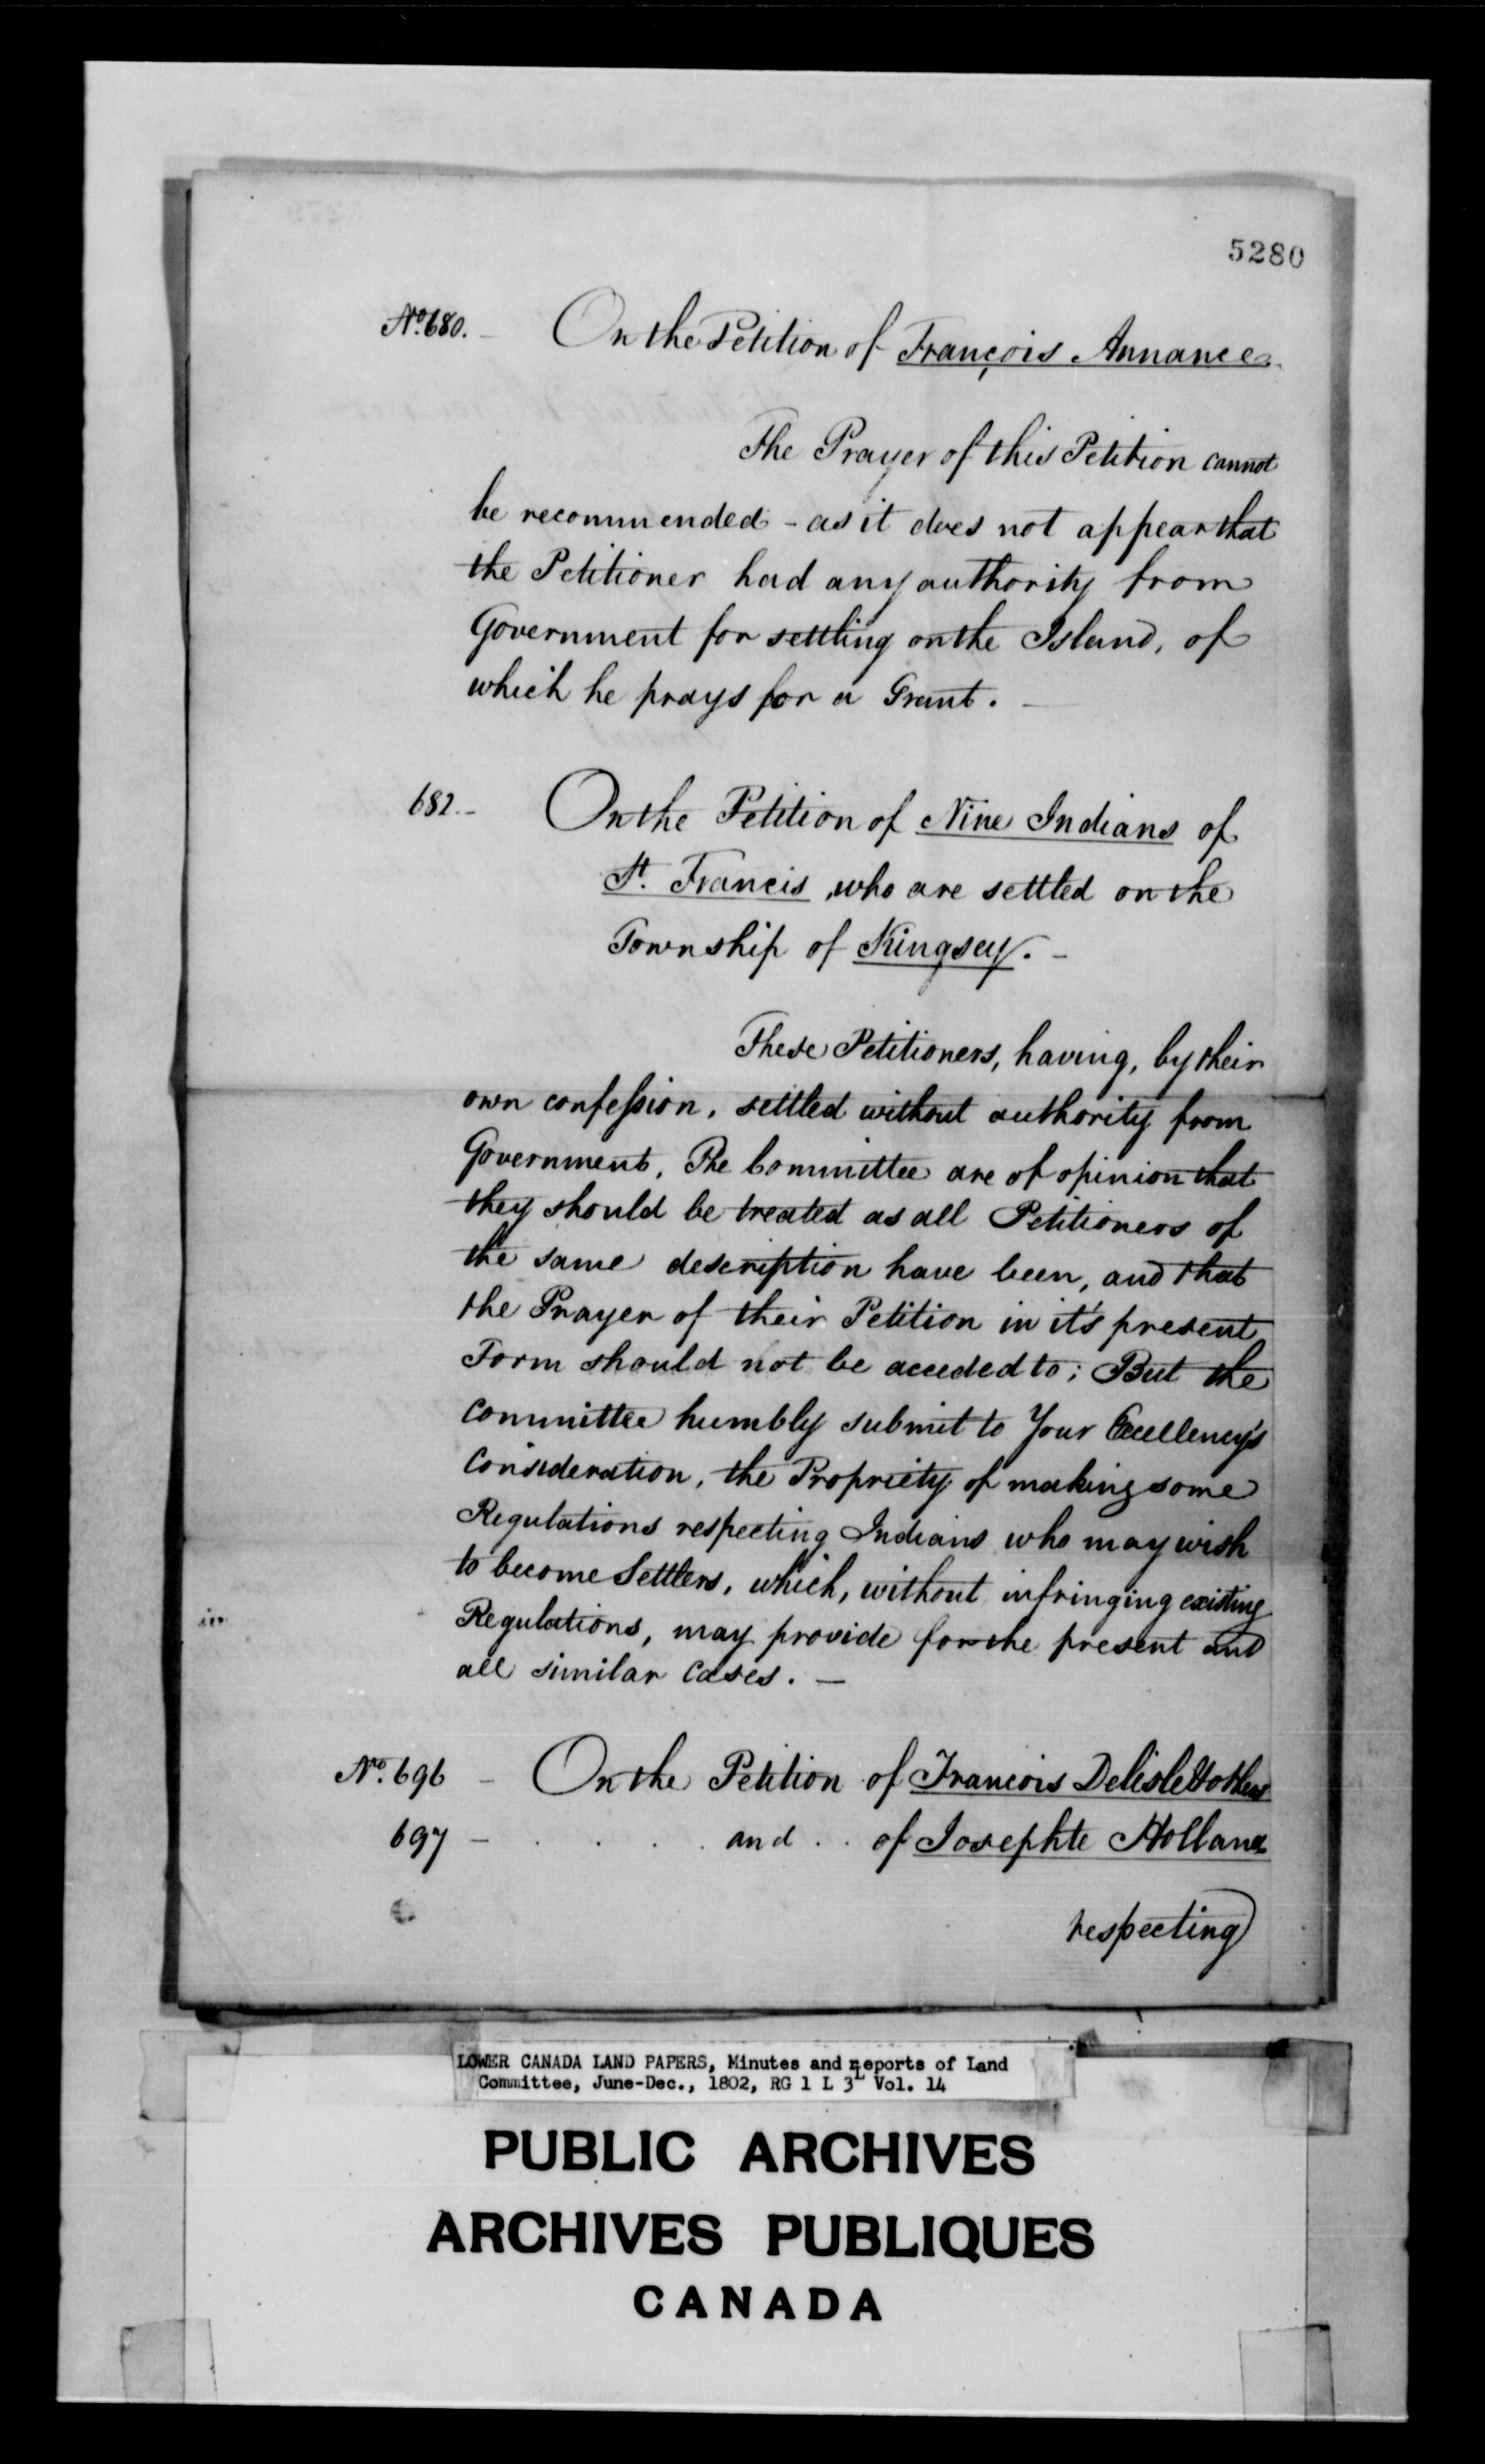 5280
No. 680. - On the Petition of François Annance.
The Prayer of this Petition cannot
be recommended - as it does not appear that
the Petitioner had any authority from
Government for settling on the Island, of
which he prays for a Grant. -
682. - On the Petition of Nine Indians of
St. Francis, who are settled on the
Township of Kingsey. -
These Petitioners, having, by their
own confession, settled without authority from
Government, The Committee are of opinion that
they should be treated as all Petitioners of
the same description have been, and that
the Prayer of their Petition in it's present
Form should not be acceded to; But the
Committee humbly submit to Your Excellency's
Consideration, the Propriety of making some
Regulations respecting Indians who may wish
to become Settlers, which, without infringing existing
Regulations, may provide for the present and
all similar cases. -
No. 696 - On the Petition of Francois Delisle
697 - . . . . and . . of Josephte Holland
respecting
LOWER CANADA LAND PAPERS, Minutes and Reports of Land
Committee, June-Dec., 1802, RG 1 L 3L Vol. 14
PUBLIC ARCHIVES
ARCHIVES PUBLIQUES
CANADA